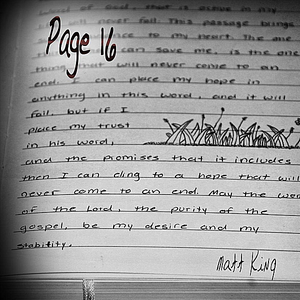 Word of God, that is hope in my
will never fail. This passage brings
Page 16
nce to my heart. The one
can save me, is the one
thing that will never come to an
end. I can place my hope in
anything in this word, and it will
fail, but if I
place my trust
in his word,
and the promises that it includes
then I can cling to a hope that will
never come to an end. May the wor
of the Lord, the purity of the
gospel, be my desire and my
stability.
Matt King